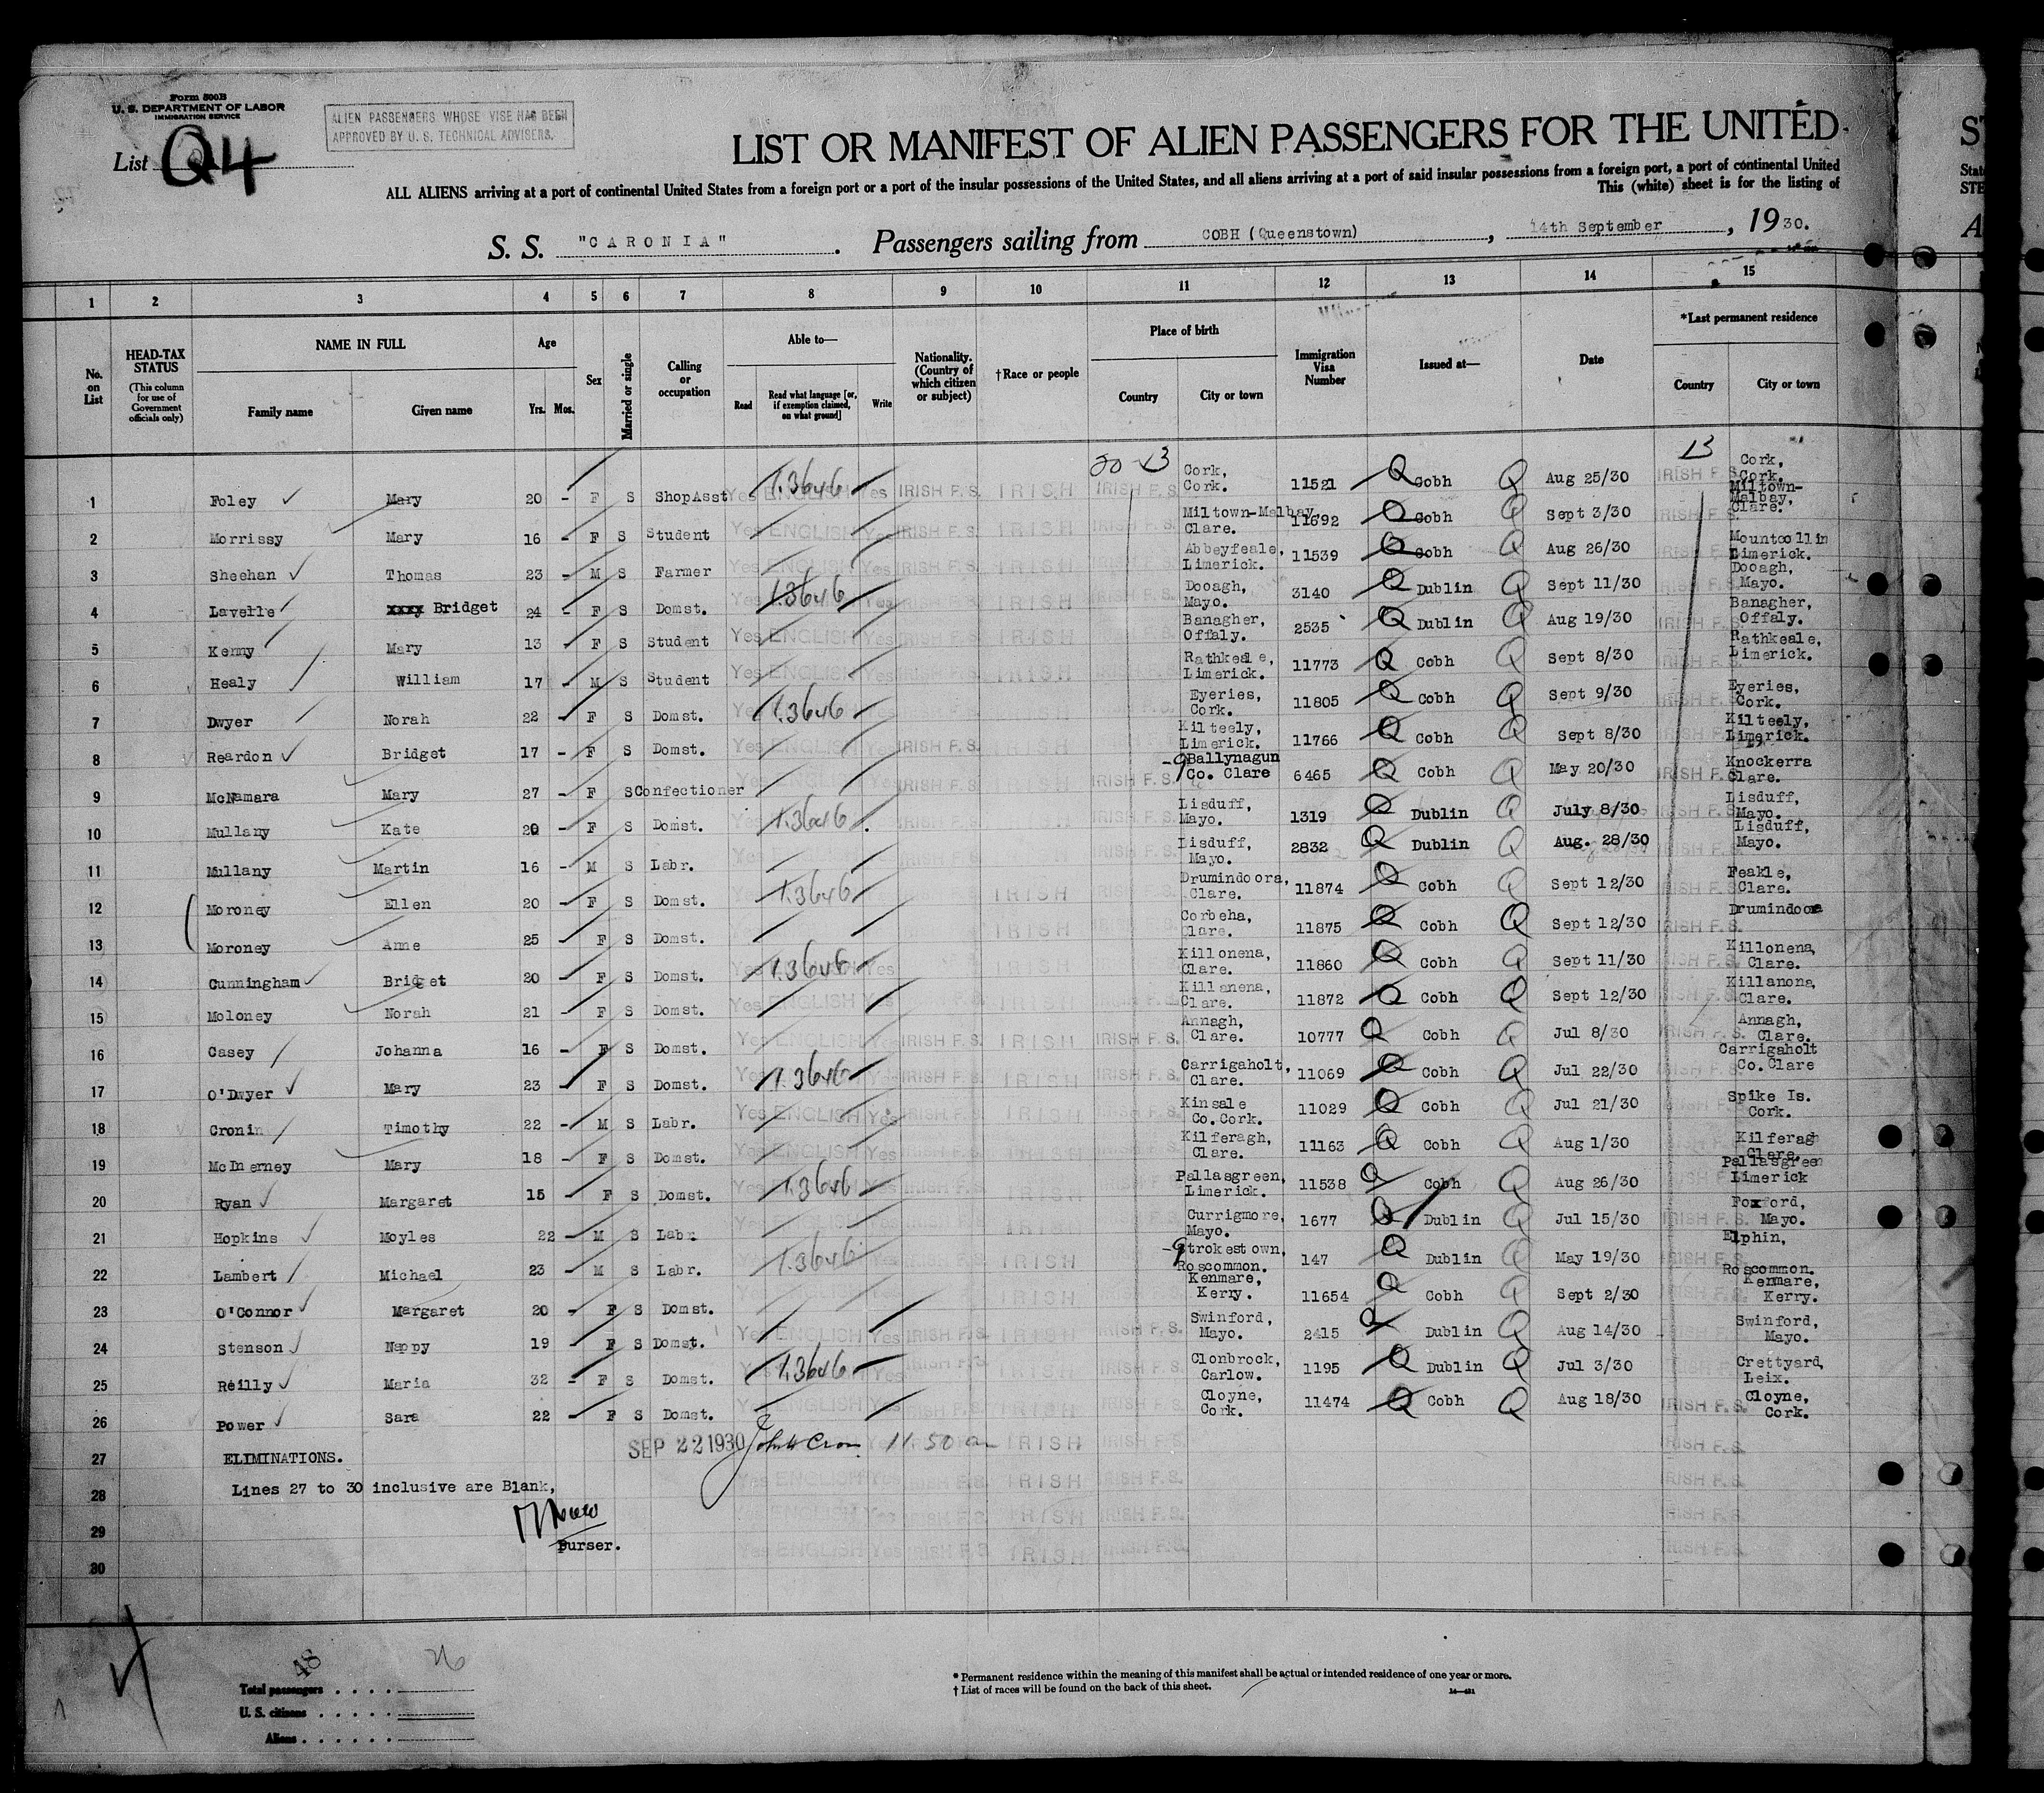 Form 500B
U. S. DEPARTMENT OF LABOR
IMMIGRATION SERVICE
ALIEN PASSENGERS WHOSE VISE HAS BEEN
APPROVED BY U. S. TECHNICAL ADVISERS.
List Q4
LIST OR MANIFEST OF ALIEN PASSENGERS FOR THE UNITED
ALL ALIENS arriving at a port of continental United States from a foreign port or a port of the insular possessions of the United States, and all aliens arriving at a port of said insular possessions from a foreign port, a port of continental United
This (white) sheet is for the listing of
S. S. "CARONIA". Passengers sailing from COBH (Queenstown), 14th September, 1930.
1 2 3 4 5 6 7 8 9 10 11 12 13 14 15
No. on List
HEAD-TAX STATUS
(This column for use of Government officials only)
NAME IN FULL
Family name Given name
Age
Yrs. Mos.
Sex
Married or single
Calling or occupation
Able to—
Read Read what language [or, if exemption claimed, on what ground] Write
Nationality. (Country of which citizen or subject)
†Race or people
Place of birth
Country City or town
Immigration Visa Number
Issued at—
Date
*Last permanent residence
Country City or town
20 13 13
1 Foley Mary 20 - F S ShopAsst Yes ENGLISH 1.3646 Yes IRISH F.S. IRISH IRISH F.S. Cork, Cork. 11521 Q Cobh Q Aug 25/30 IRISH F.S. Cork, Cork.
2 Morrissy Mary 16 - F S Student Yes ENGLISH Yes IRISH F.S. IRISH IRISH F.S. Miltown-Malbay, Clare. 11692 Q Cobh Q Sept 3/30 IRISH F.S. Miltown-Malbay, Clare.
3 Sheehan Thomas 23 - M S Farmer Yes ENGLISH Yes IRISH F.S. IRISH Abbeyfeale, Limerick. 11539 Q Cobh Q Aug 26/30 Mountcollin Limerick.
4 Lavelle xxxx Bridget 24 - F S Domst. 1.3646 Yes IRISH F.S. IRISH Dooagh, Mayo. 3140 Q Dublin Q Sept 11/30 IRISH F.S. Dooagh, Mayo.
5 Kenny Mary 13 - F S Student Yes ENGLISH Yes IRISH F.S. IRISH Banagher, Offaly. 2535 Q Dublin Q Aug 19/30 IRISH F.S. Banagher, Offaly.
6 Healy William 17 - M S Student Yes ENGLISH Yes IRISH F.S. IRISH Rathkeale, Limerick. 11773 Q Cobh Q Sept 8/30 IRISH F.S. Rathkeale, Limerick.
7 Dwyer Norah 22 - F S Domst. 1.3646 IRISH Eyeries, Cork. 11805 Q Cobh Q Sept 9/30 IRISH F.S. Eyeries, Cork.
8 Reardon Bridget 17 - F S Domst. Yes ENGLISH Yes IRISH F.S. IRISH Kilteely, Limerick. 11766 Q Cobh Q Sept 8/30 Kilteely, Limerick.
9 McNamara Mary 27 - F S Confectioner IRISH F.S. IRISH IRISH F.S. -9 Ballynagun Co. Clare 6465 Q Cobh Q May 20/30 IRISH F.S. Knockerra Clare.
10 Mullany Kate 20 - F S Domst. 1.3646 Lisduff, Mayo. 1319 Q Dublin Q July 8/30 IRISH F.S. Lisduff, Mayo.
11 Mullany Martin 16 - M S Labr. Lisduff, Mayo. 2832 Q Dublin Q Aug. 28/30 IRISH F.S. Lisduff, Mayo.
12 Moroney Ellen 20 - F S Domst. 1.3646 IRISH Drumindoora, Clare. 11874 Q Cobh Q Sept 12/30 IRISH F.S. Feakle, Clare.
13 Moroney Anne 25 F S Domst. IRISH Corbeha, Clare. 11875 Q Cobh Q Sept 12/30 IRISH F.S. Drumindoora
14 Cunningham Bridget 20 - F S Domst. 1.3646 Yes Killonena, Clare. 11860 Q Cobh Q Sept 11/30 IRISH F.S. Killonena, Clare.
15 Moloney Norah 21 - F S Domst. Yes ENGLISH Yes Killanena, Clare. 11872 Q Cobh Q Sept 12/30 IRISH F.S. Killanona, Clare.
16 Casey Johanna 16 - F S Domst. Yes ENGLISH Yes IRISH F.S. IRISH IRISH F.S. Annagh, Clare. 10777 Q Cobh Q Jul 8/30 IRISH F.S. Annagh, Clare.
17 O'Dwyer Mary 23 - F S Domst. Yes 1.3646 IRISH F.S. IRISH Carrigaholt, Clare. 11069 Q Cobh Q Jul 22/30 Carrigaholt Co.Clare
18 Cronin Timothy 22 - M S Labr. Yes ENGLISH Yes IRISH F.S. IRISH Kinsale Co.Cork. 11029 Q Cobh Q Jul 21/30 IRISH F.S. Spike Is. Cork.
19 McInerney Mary 18 - F S Domst. Yes ENGLISH Yes IRISH F.S. IRISH Kilferagh, Clare. 11163 Q Cobh Q Aug 1/30 Kilferagh Clare.
20 Ryan Margaret 15 - F S Domst. Yes 1.3646 IRISH F.S. IRISH Pallasgreen, Limerick. 11538 Q Cobh Q Aug 26/30 Pallasgreen Limerick
21 Hopkins Moyles 22 - M S Labr. IRISH Currigmore, Mayo. 1677 Q Dublin Q Jul 15/30 IRISH F.S. Foxford, Mayo.
22 Lambert Michael 23 - M S Labr. 1.3646 IRISH -9 Strokestown, Roscommon. 147 Q Dublin Q May 19/30 IRISH F.S. Elphin, Roscommon.
23 O'Connor Margaret 20 - F S Domst. IRISH Kenmare, Kerry. 11654 Q Cobh Q Sept 2/30 IRISH F.S. Kenmare, Kerry.
24 Stenson Nappy 19 - F S Domst. Yes ENGLISH Yes IRISH F.S. IRISH IRISH F.S. Swinford, Mayo. 2415 Q Dublin Q Aug 14/30 IRISH F.S. Swinford, Mayo.
25 Reilly Maria 32 - F S Domst. Yes 1.3646 Yes IRISH Clonbrock, Carlow. 1195 Q Dublin Q Jul 3/30 Crettyard, Leix.
26 Power Sara 22 - F S Domst. Yes ENGLISH IRISH F.S. IRISH IRISH F.S. Cloyne, Cork. 11474 Q Cobh Q Aug 18/30 IRISH F.S. Cloyne, Cork.
27 ELIMINATIONS. SEP 22 1930 11 50 am IRISH IRISH F.S. IRISH F.S.
28 Lines 27 to 30 inclusive are Blank, Yes ENGLISH Yes IRISH F.S. IRISH IRISH F.S. IRISH F.S.
29 ENGLISH Yes IRISH F.S. IRISH IRISH F.S. IRISH F.S.
Purser.
30 Yes ENGLISH Yes IRISH F.S. IRISH IRISH F.S. IRISH F.S.
48 26
Total passengers
U. S. citizens
Aliens
* Permanent residence within the meaning of this manifest shall be actual or intended residence of one year or more.
† List of races will be found on the back of this sheet.
14—431